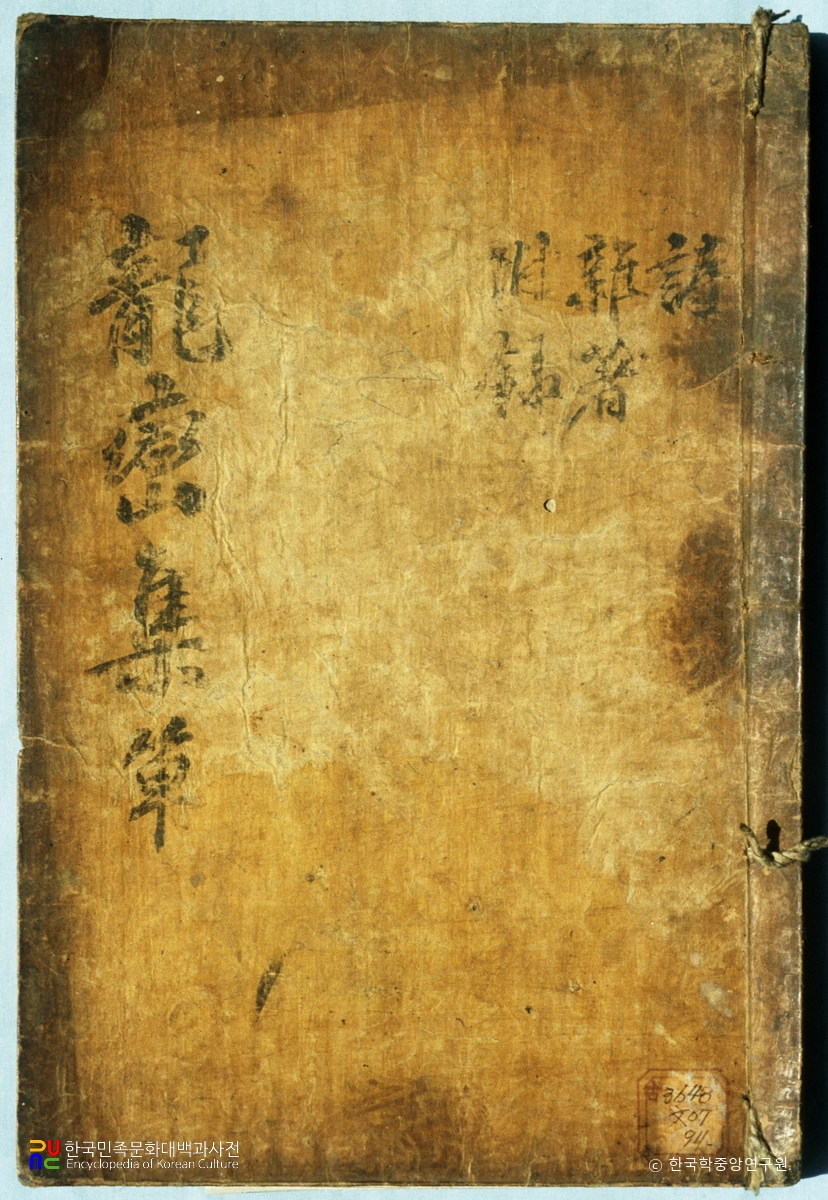 詩
雜著
附錄
龍巒集單
古3640
文07
94-
한국민족문화대백과사전
Encyclopedia of Korean Culture
© 한국학중앙연구원